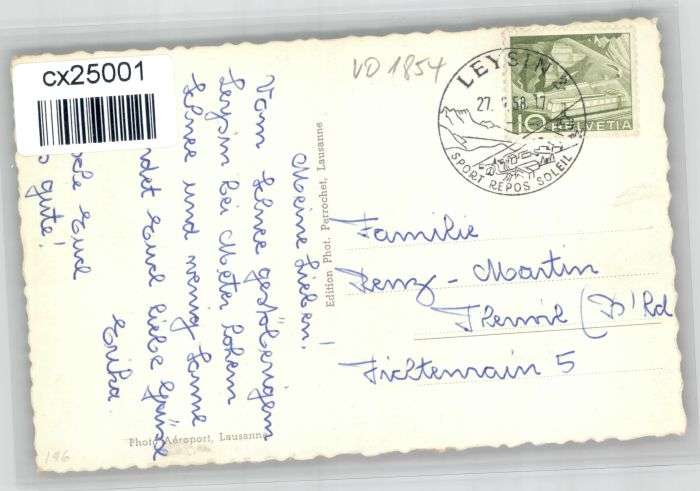 cx25001
VD 1854
LEYSIN
27. 58.-17
SPORT REPOS SOLEIL
10 HELVETIA
Meine Lieben!
Vom Schnee gestöberigem
Leysin bei Meter hohem
Schnee und wenig Sonne
ndet Euch liebe Grüsse
Euch Erika.
gute!
Edition Phot. Perrochet, Lausanne
Familie
Benz - Martin
Therwil (B'ld
Fichtenrain 5
Photo Aéroport, Lausanne
196